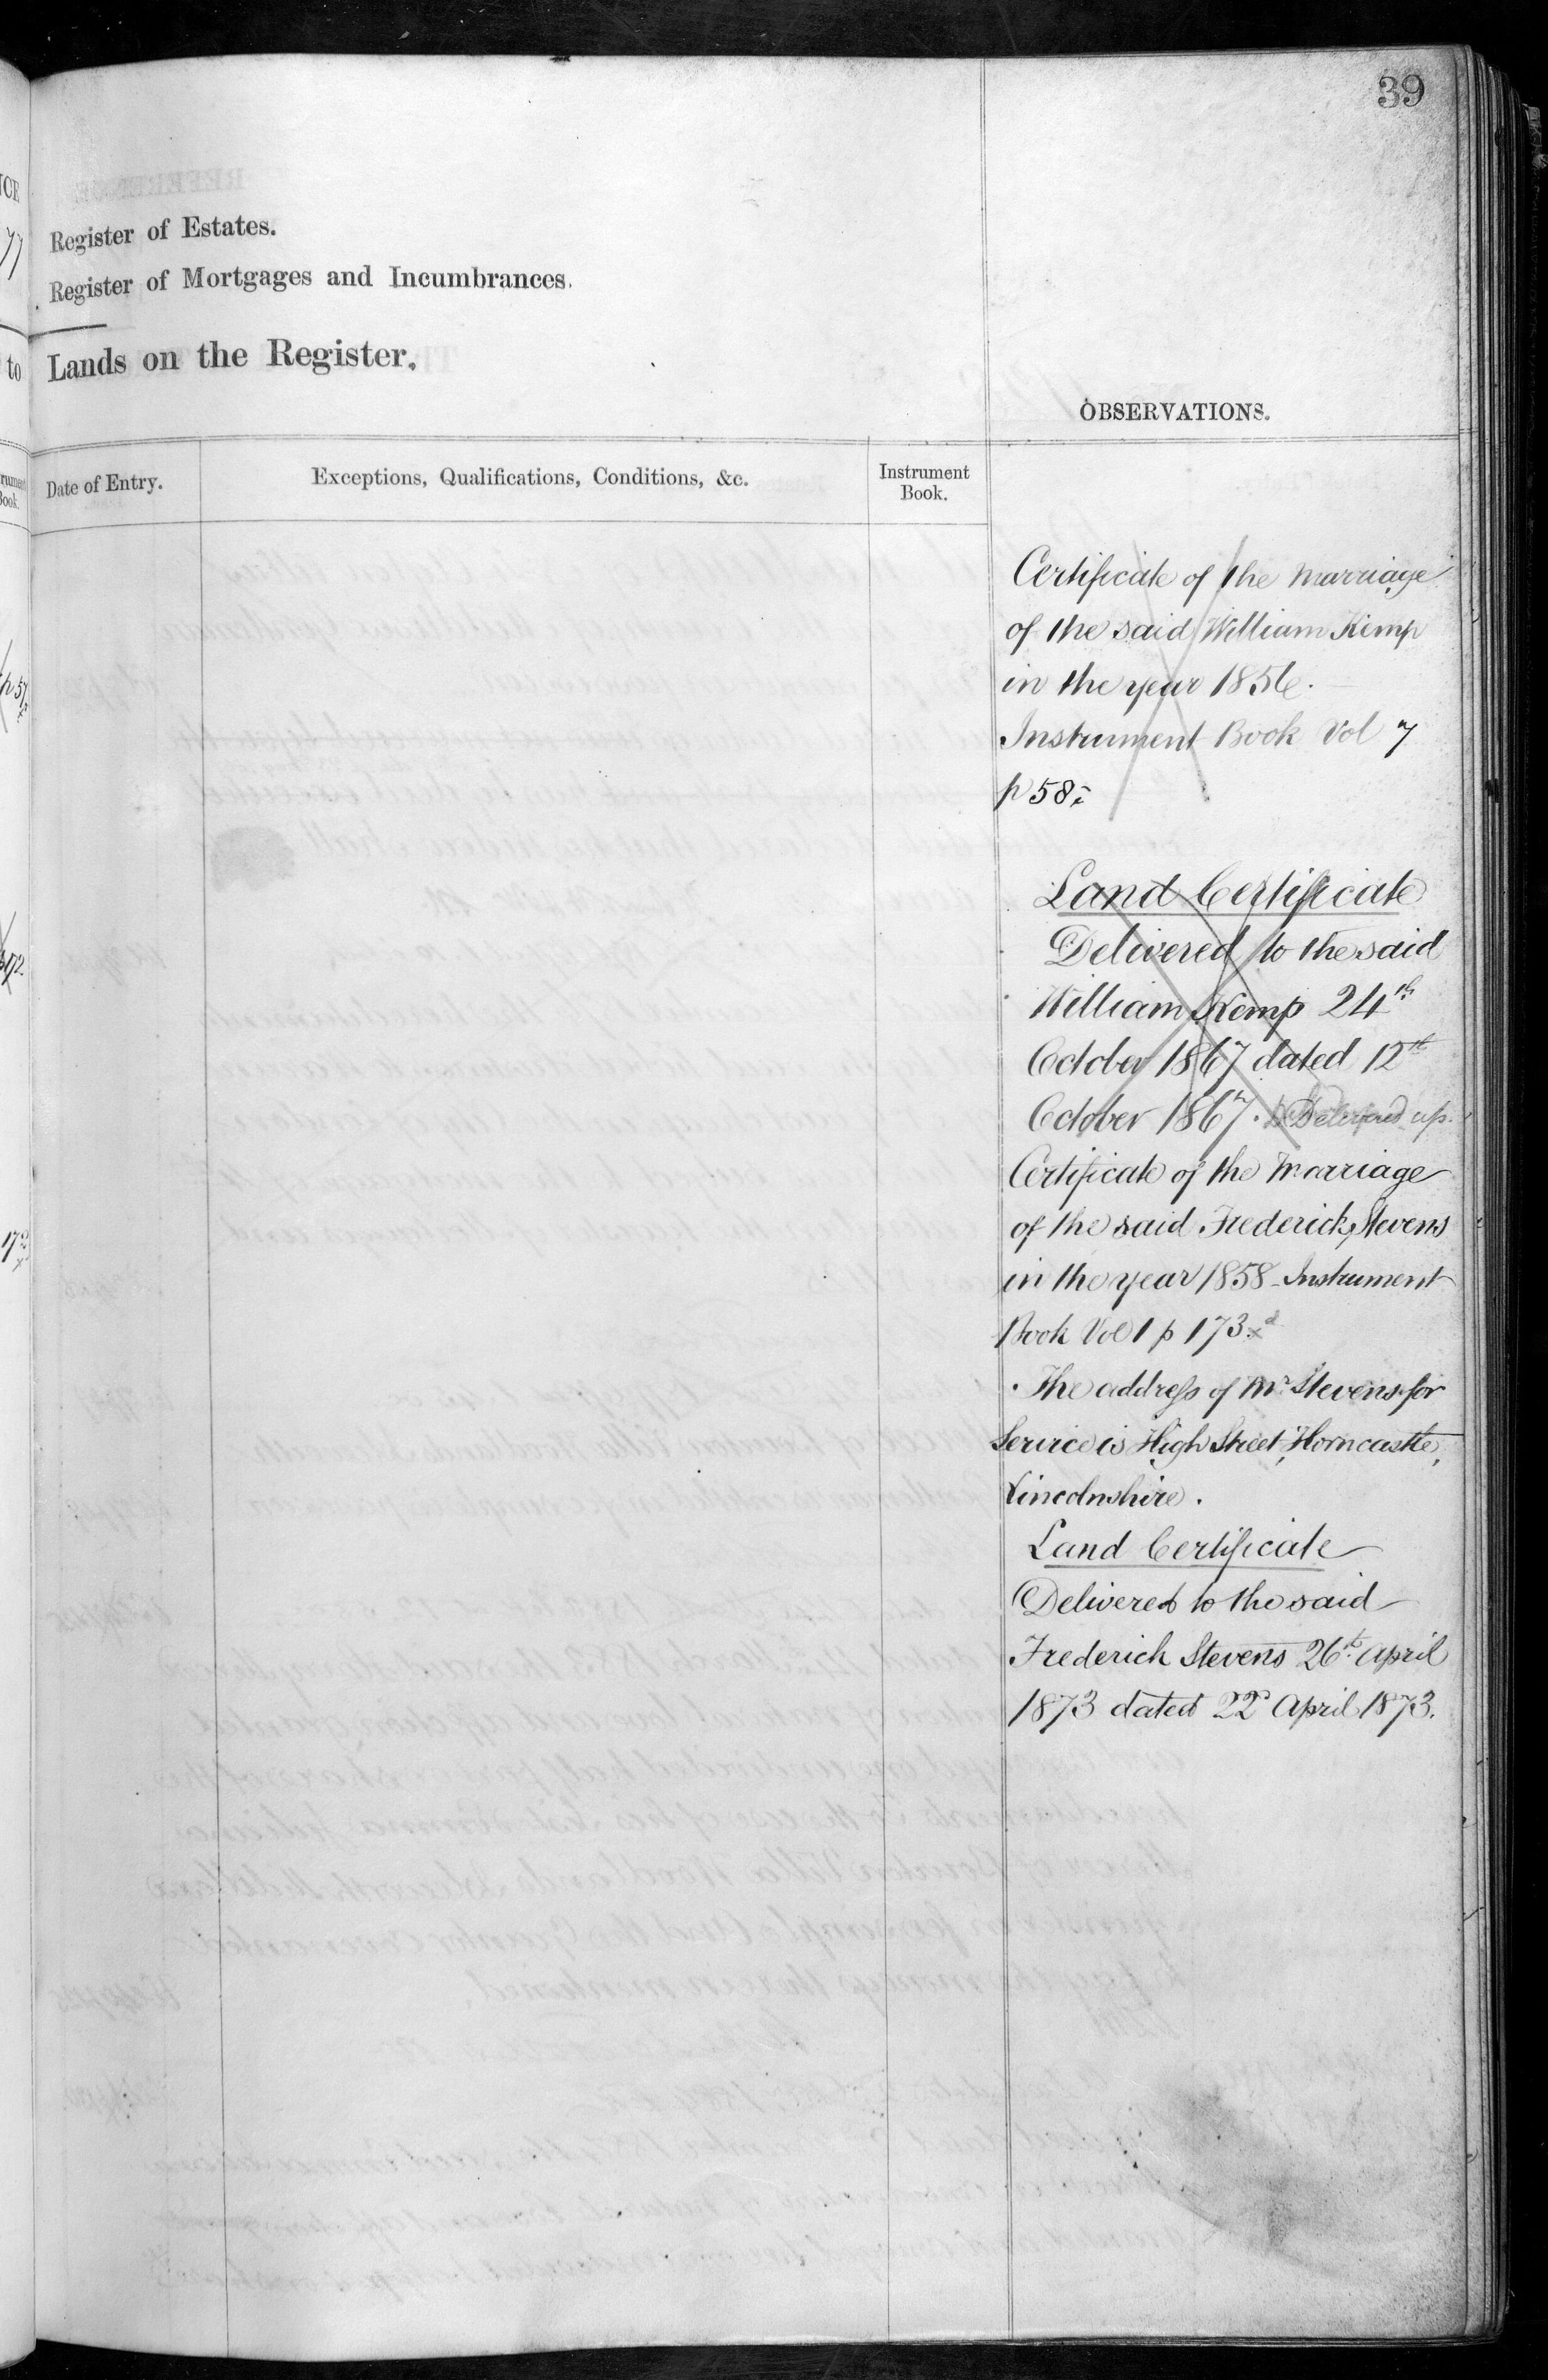 39
Register of Estates.
Register of Mortgages and Incumbrances.
to Lands on the Register.
OBSERVATIONS.
Date of Entry.
Exceptions, Qualifications, Conditions, &c.
Instrument
Book.
Certificate of the Marriage
of the said William Kemp
in the year 1856.
Instrument Book Vol 7
p 58
Land Certificate
Delivered to the said
William Kemp 24th
October 1867 dated 12th
October 1867. Delivered up.
Certificate of the Marriage
of the said Frederick Stevens
in the year 1858 Instrument
Book Vol 1 p 173
The address of Mr Stevens for
Service is High Street, Horncastle,
Lincolnshire.
Land Certificate
Delivered to the said
Frederick Stevens 26th April
1873 dated 22d April 1873.